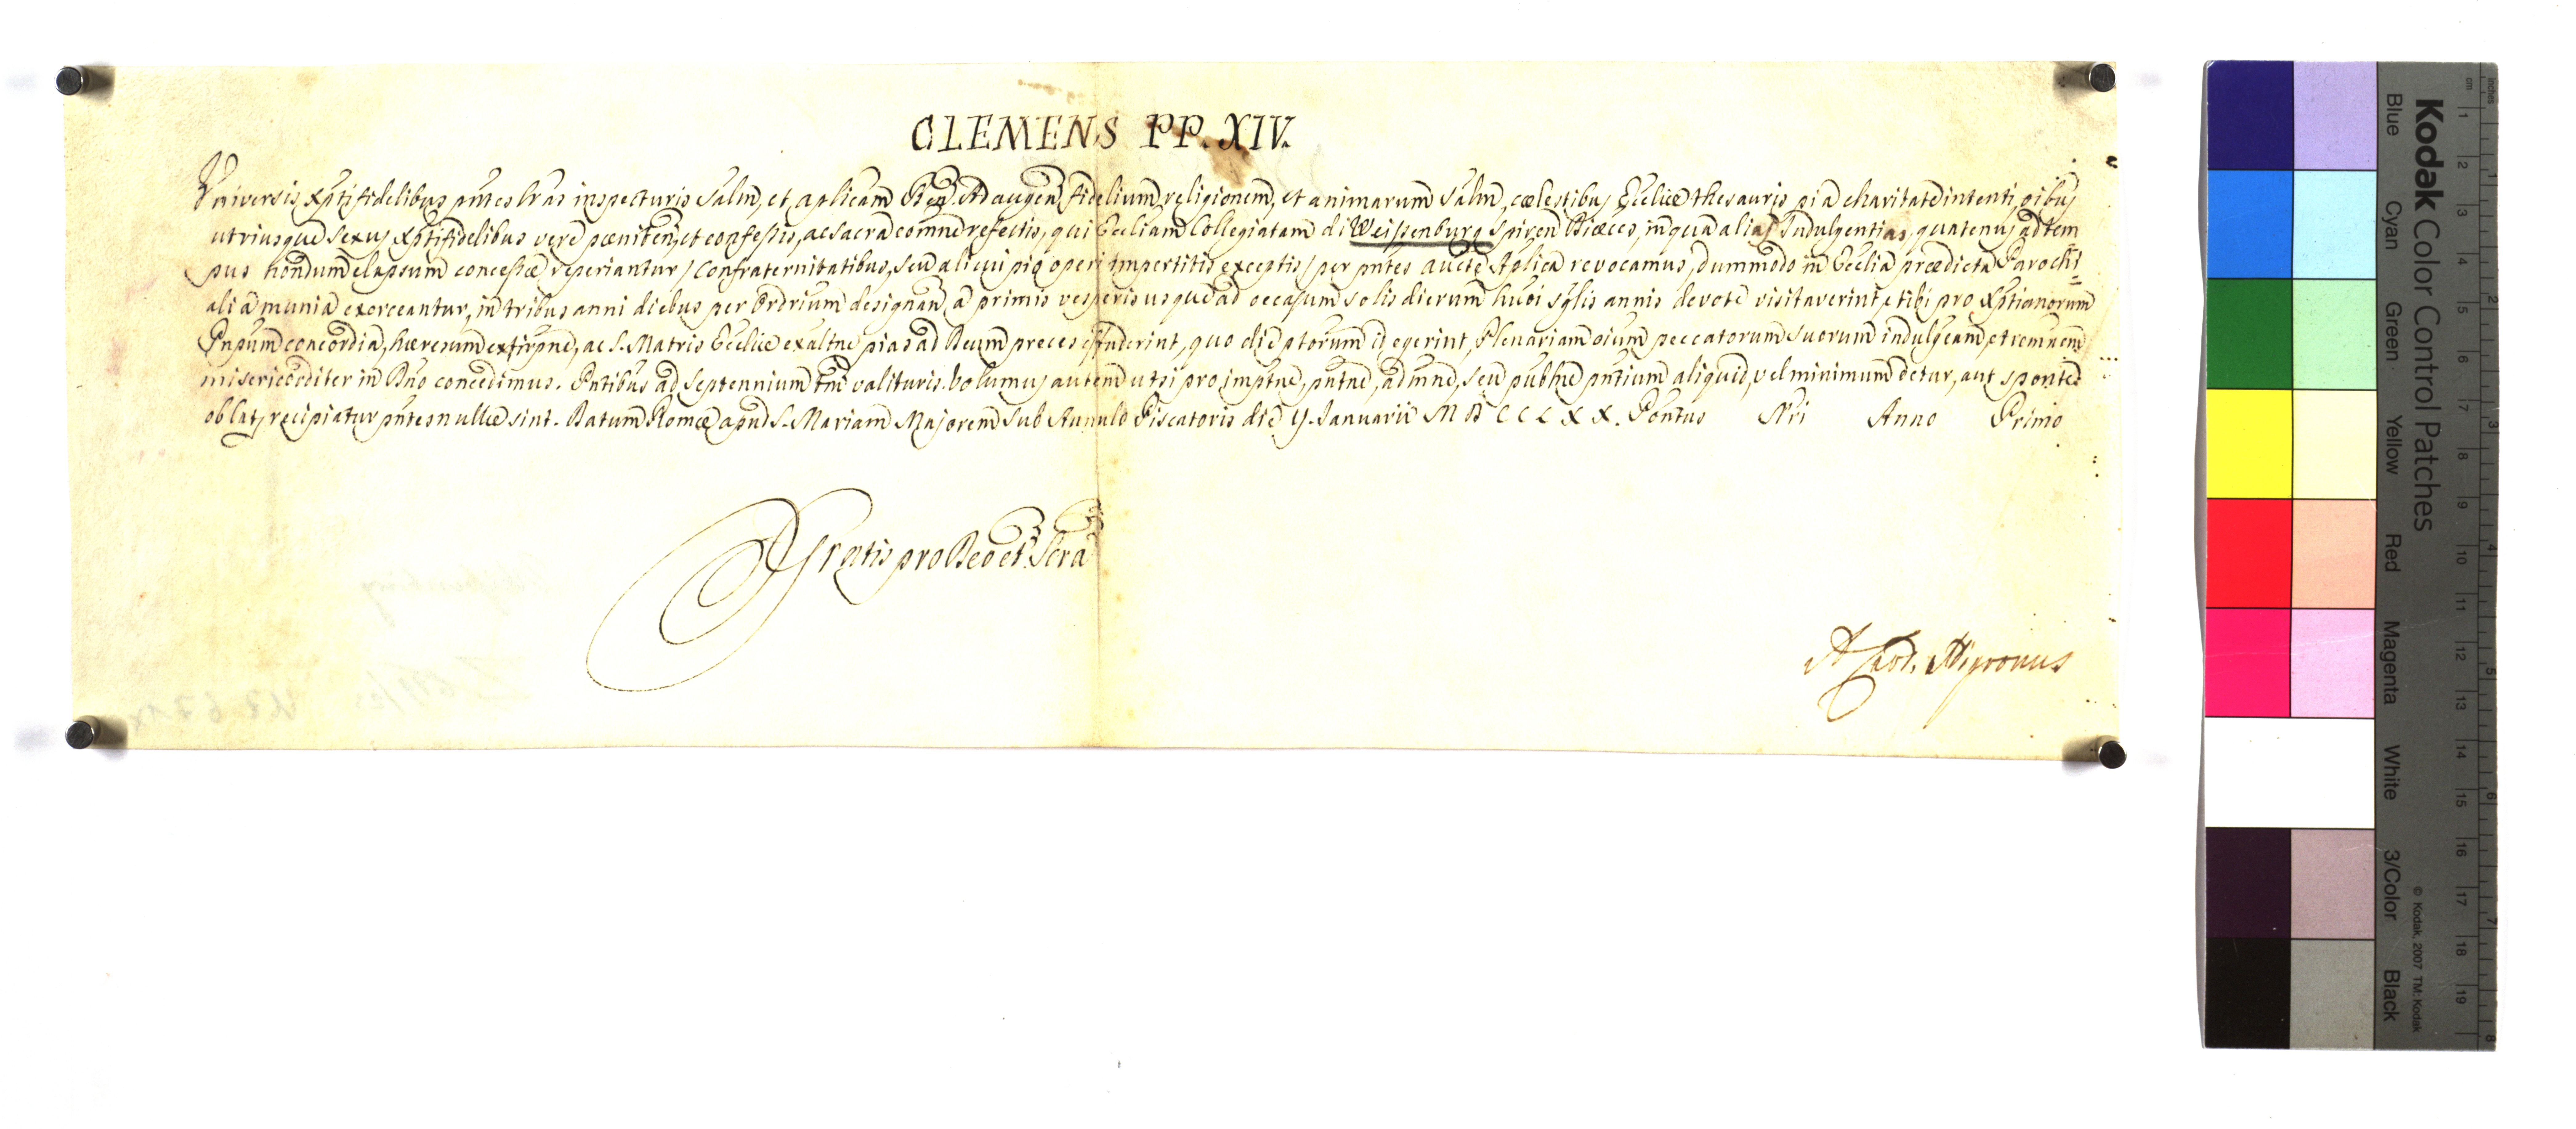 CLEMENS PP. XIV.
Universis Xptifidelibus pntes lras inspecturis salm, et aplicam Ben. Ad augen fidelium religionem, et animarum salm, cœlestibus Eccliæ thesauris pia charitate intenti, oibus
utriusque sexus Xptifidelibus vere pœniten, et confessis, ac sacra comne refectis, qui Eccliam Collegiatam di Weissenburg Spiren Diœces, in qua alias Indulgentias, quatenus ad tem
pus nondum elapsum concessæ reperiantur / Confraternitatibus, seu alicui pio operi impertitis exceptis / per pntes aucte Aplica revocamus, dummodo in Ecclia prædicta Parochi=
alia munia exerceantur, in tribus anni diebus per Ordrium designan, a primis vesperis usque ad occasum solis dierum huoi sglis annis devote visitaverint, et ibi pro Xptianorum
Pnpum concordia, hæresum extirpne, ac S. Matris Eccliæ exaltne pias ad Deum preces effuderint, quo die ptorum id egerint, Plenariam oium peccatorum suorum indulgeam, et remnem
misericorditer in Dno concedimus. Pntibus ad septennium tm valituris. Volumus autem ut si pro imptne, pntne, admne, seu publne pntium aliquid, vel minimum detur, aut sponte
oblat, recipiatur pntes nullæ sint. Datum Romæ apud S. Mariam Majorem sub Annulo Piscatoris die 9. Januarii MDCCLXX. Pontus Nri Anno Primo
Gratis pro Deo et Scra
A. Card. Nigronus
Kodak Color Control Patches
Blue Cyan Green Yellow Red Magenta White 3/Color Black
© Kodak, 2007 TM: Kodak
inches 1 2 3 4 5 6 7 8
cm 1 2 3 4 5 6 7 8 9 10 11 12 13 14 15 16 17 18 19